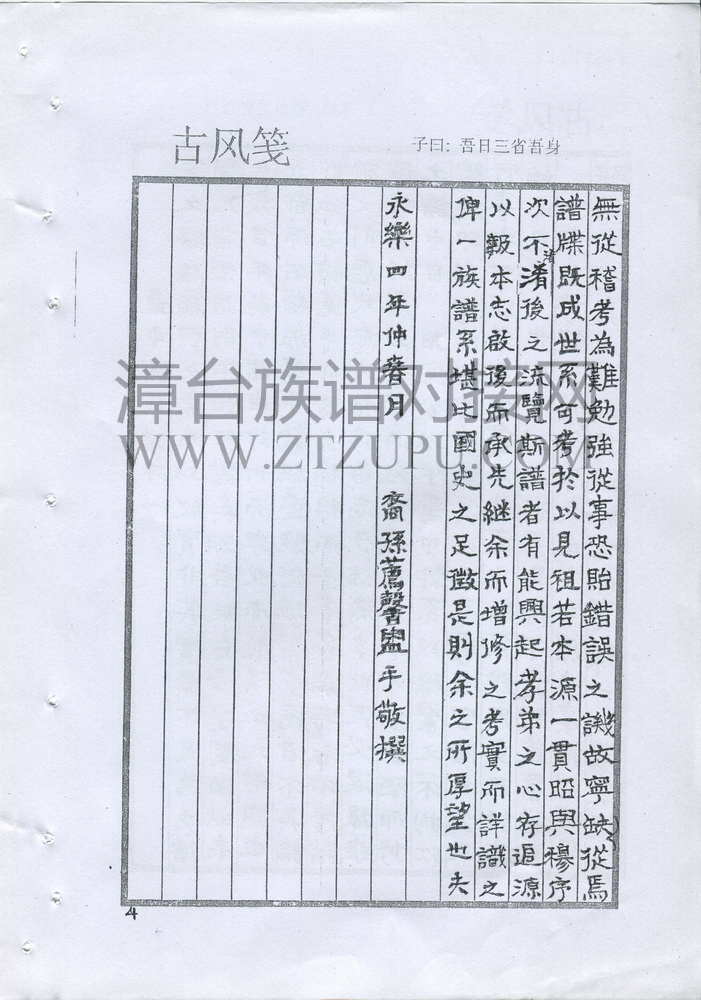 古风笺
子曰：吾日三省吾身
無從稽考為難勉強從事恐貽錯誤之譏故寧缺從焉
譜牒既成世系可考於以見祖若本源一貫昭與穆序
次不淆後之流覽斯譜者有能興起孝弟之心存追源
淆
以報本志啟後而承先継余而增修之考實而詳識之
俾一族譜系堪比國史之足徵是則余之所厚望也夫
永樂四年仲春月
裔孫薦馨盥手敬撰
漳台族谱对接网
WWW.ZTZUPU.COM
4